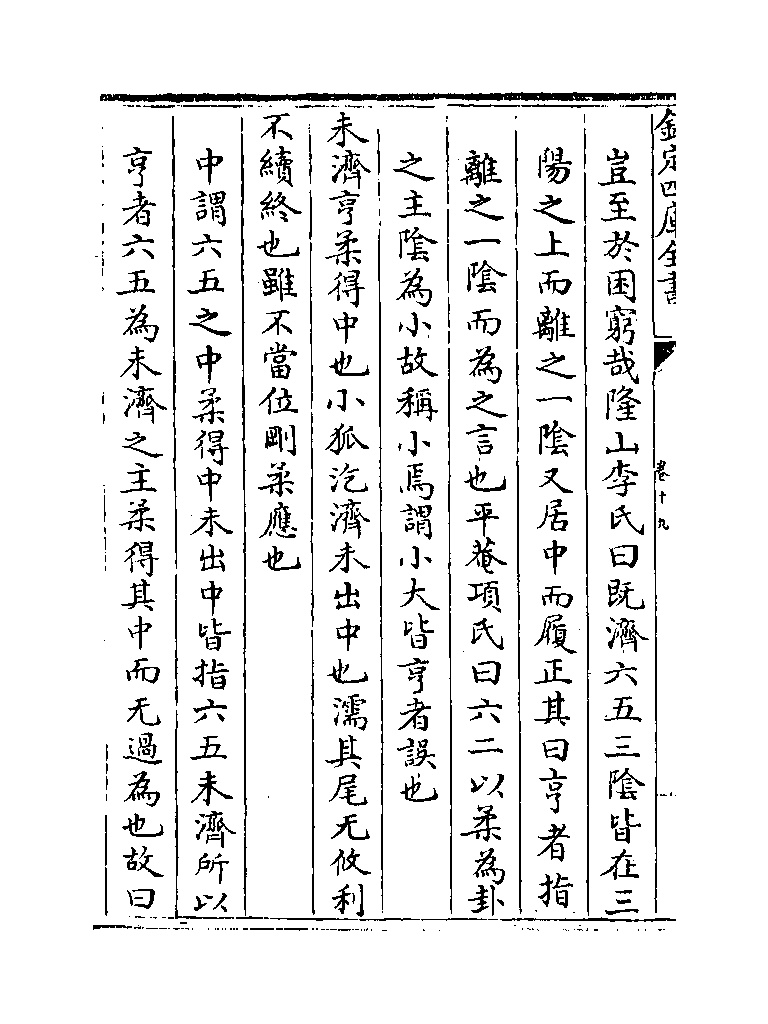 欽定四庫全書
卷十九
豈至於困窮哉隆山李氏曰既濟六五三陰皆在三
陽之上而離之一陰又居中而履正其曰亨者指
離之一陰而為之言也平菴項氏曰六二以柔為卦
之主陰為小故稱小焉謂小大皆亨者誤也
未濟亨柔得中也小狐汔濟未出中也濡其尾无攸利
不續終也雖不當位剛柔應也
中謂六五之中柔得中未出中皆指六五未濟所以
亨者六五為未濟之主柔得其中而无過為也故曰